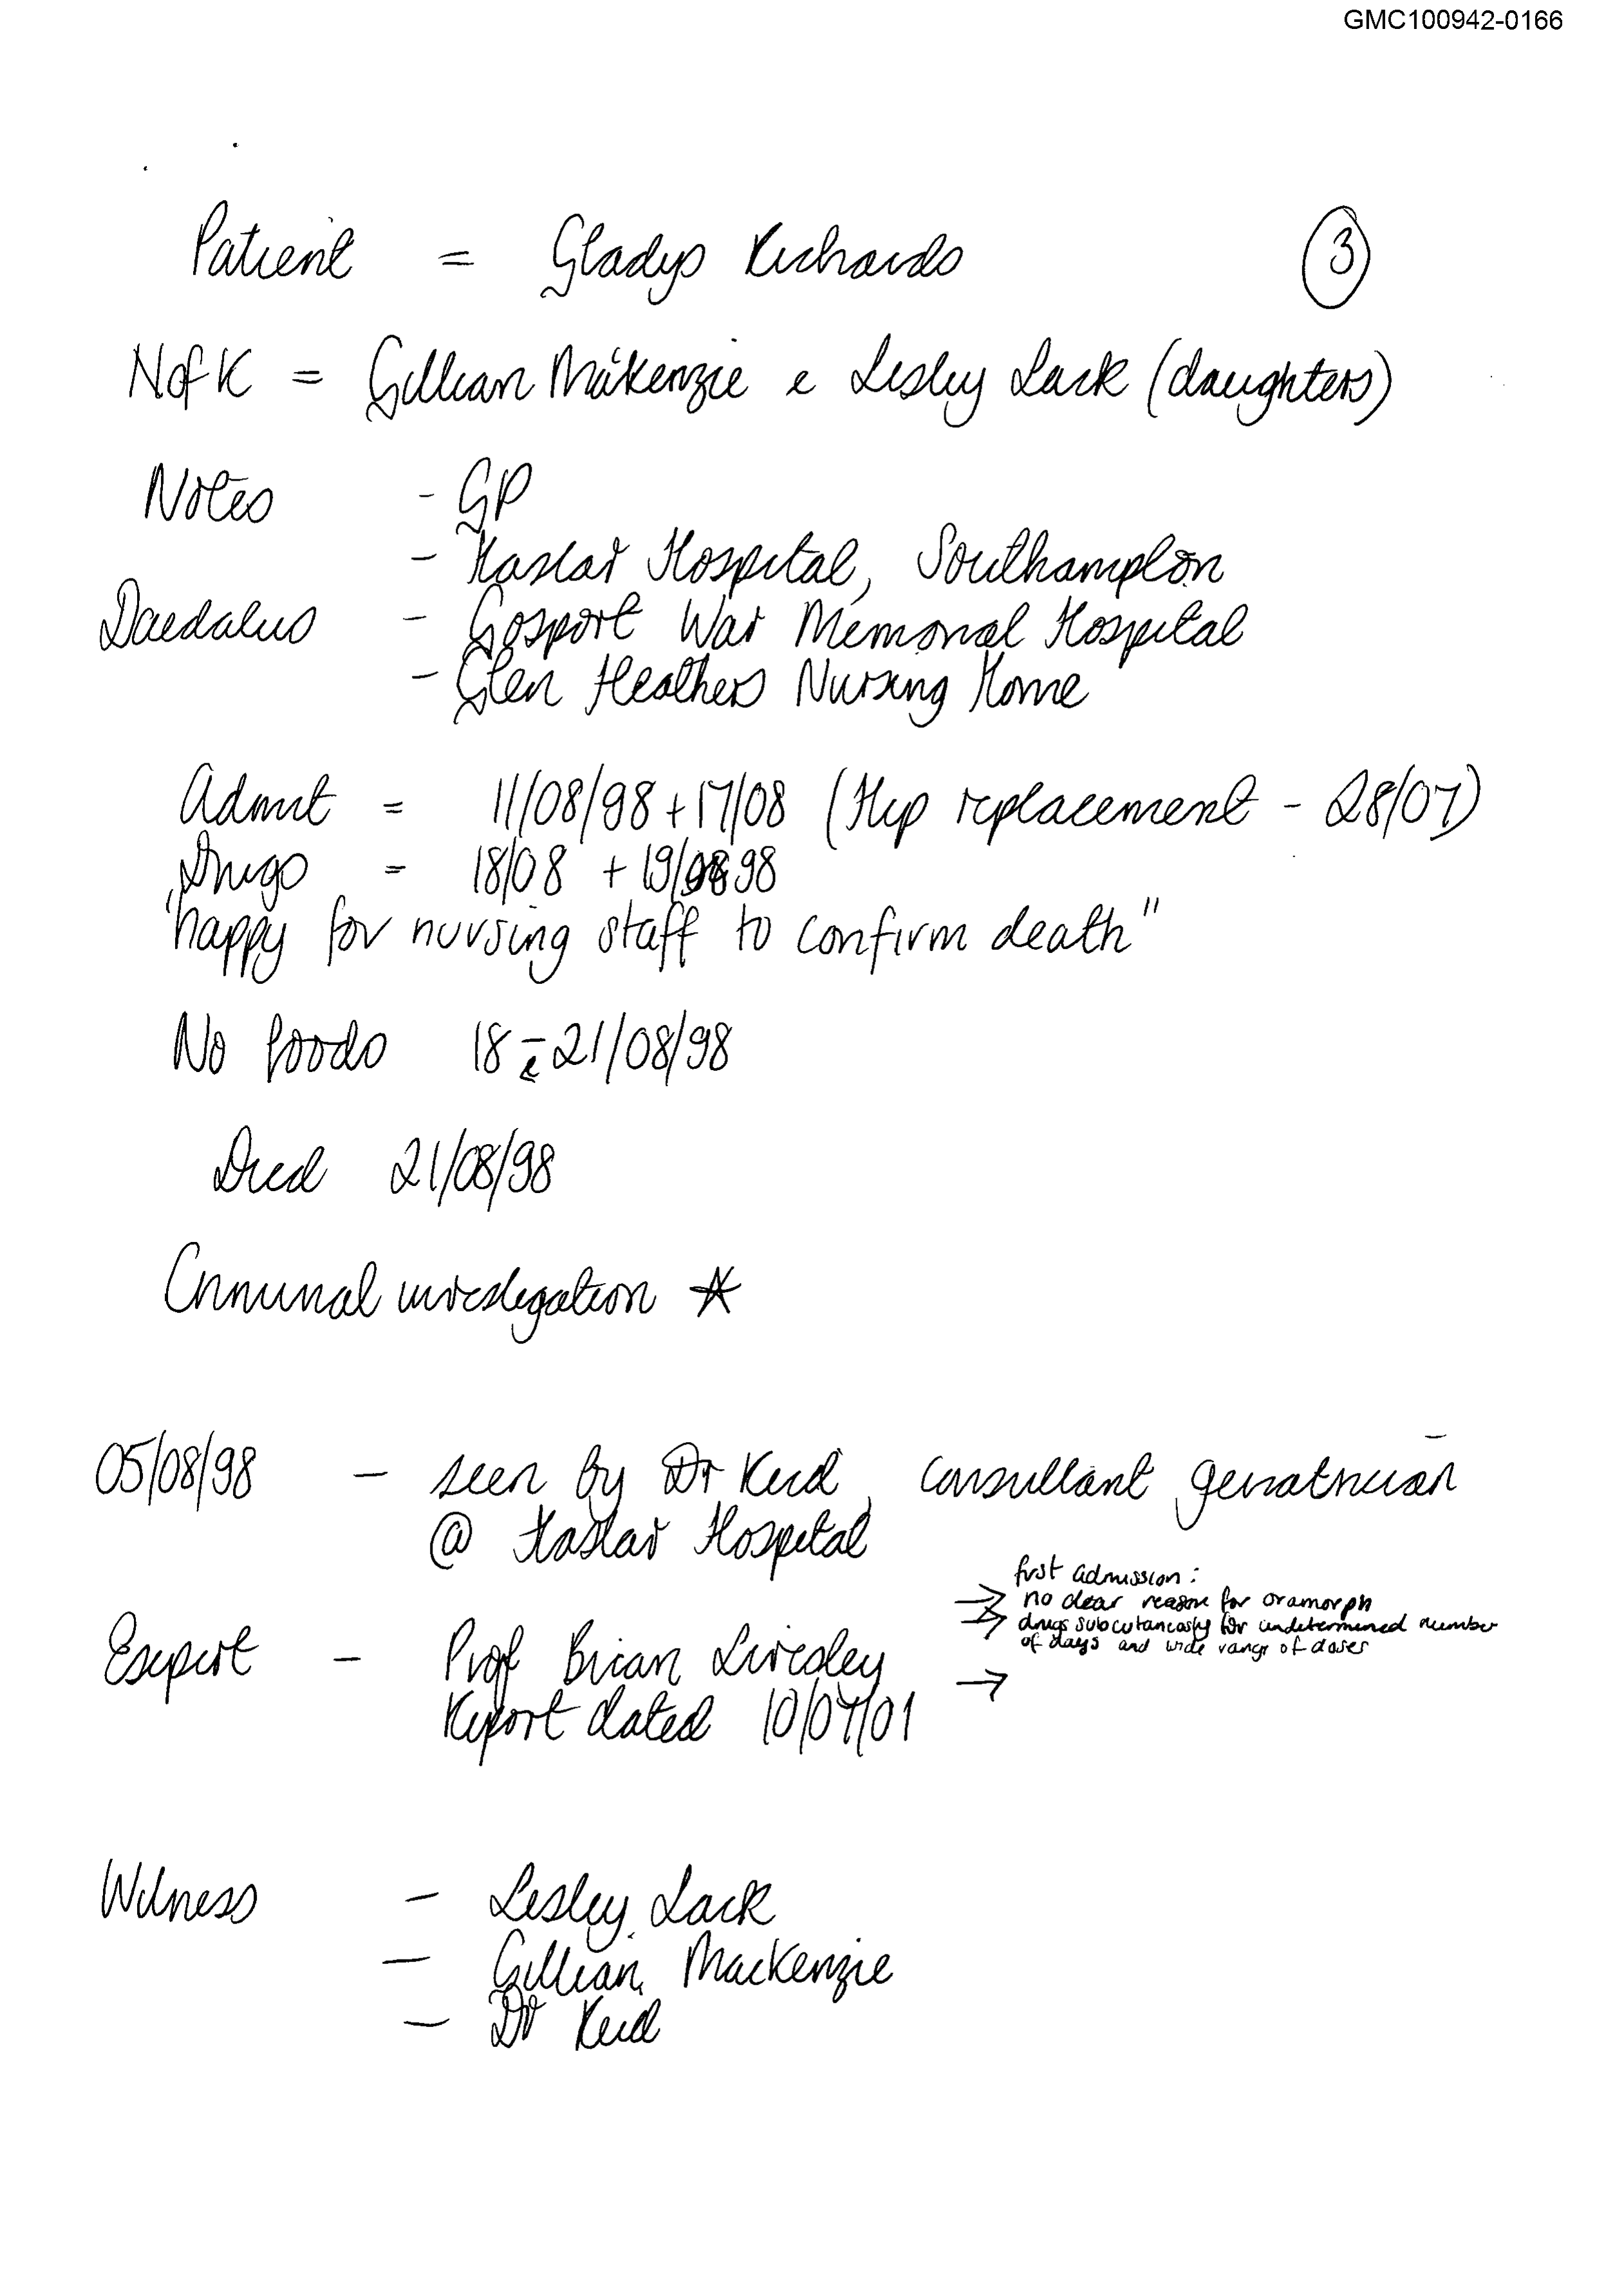 GMC100942-0166
Patient = Gladys Richards
3
NofK = Gillian Mackenzie e Lesley Lack (daughters)
Notes - GP
- Haslar Hospital, Southampton
Daedalus - Gosport War Memorial Hospital
- Glen Heathers Nursing Home
Admit = 11/08/98 + 17/08 (Hip replacement - 28/07)
Drugs = 18/08 + 19/08 98
"happy for nursing staff to confirm death"
No foods 18 - 21/08/98
Died 21/08/98
Criminal investigation *
05/08/98 - seen by Dr Reid, consultant geriatrician
@ Haslar Hospital
first admission:
→ no clear reason for oramorph
→ drugs subcutaneously for undetermined number
of days and wide range of doses
Expert - Prof Brian Livesley →
Report dated 10/07/01
Witness - Lesley Lack
- Gillian Mackenzie
- Dr Reid